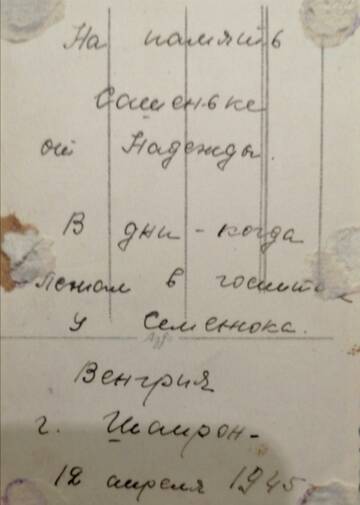 На память
Сашеньке
от Надежды.
В дни - когда
лежала в госпит
у Семенюка.
Венгрия
г. Шопрон-
12 апреля 1945